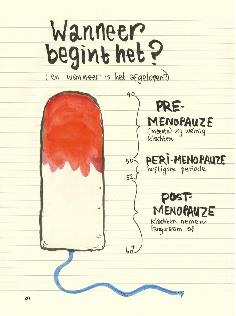 Wanneer
begint het?
(en wanneer is het afgelopen?)
40
PRE-
MENOPAUZE
(meestal) vrij weinig
klachten
50
PERI-MENOPAUZE
heftigste periode
52
POST-
MENOPAUZE
klachten nemen
langzaam af
60